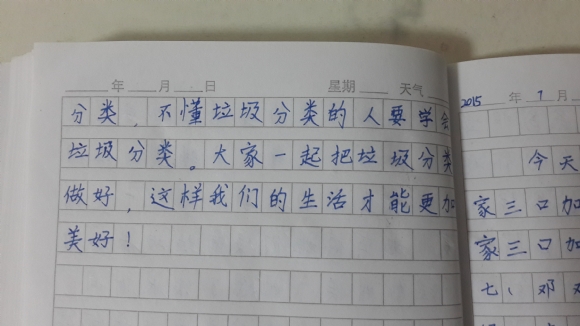 年 月 日 星期 天气
分类,不懂垃圾分类的人要学会
垃圾分类。大家一起把垃圾分类
做好,这样我们的生活才能更加
美好!
2015 年 7 月
今天
家三口加
家三口加
七、邓